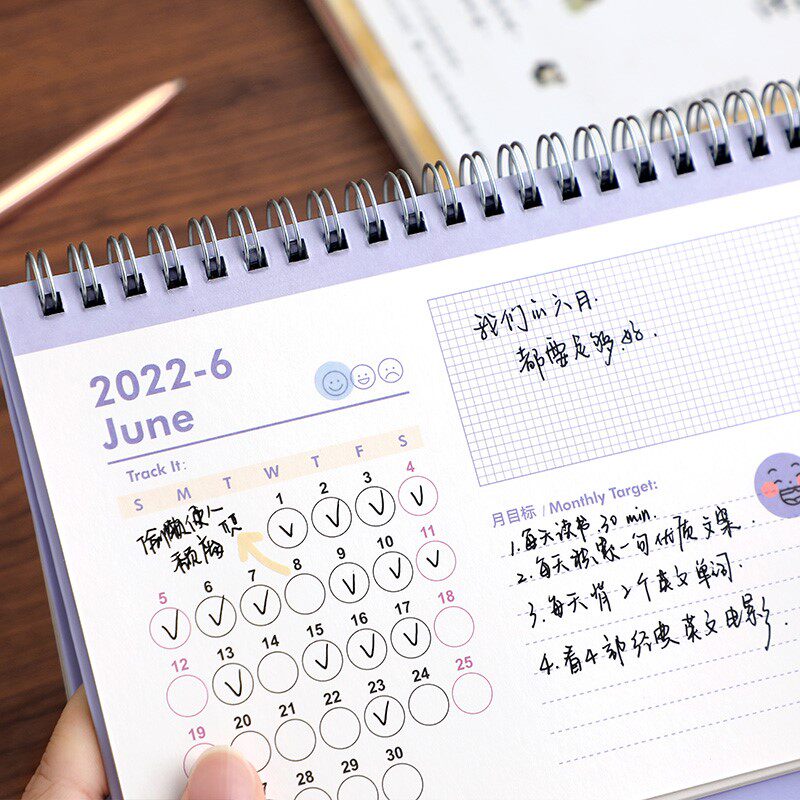 2022-6
June
Track It:
S M T W T F S
1 2 3 4
偷懒使人
5 6 7 8 9 10 11
12 13 14 15 16 17 18
19 20 21 22 23 24 25
28 29 30
我们in六月.
都要足够好.
月目标 / Monthly Target:
1.每天读书30 min.
2.每天积累一句优质文案
3.每天背2个英文单词
4.看4部经典英文电影